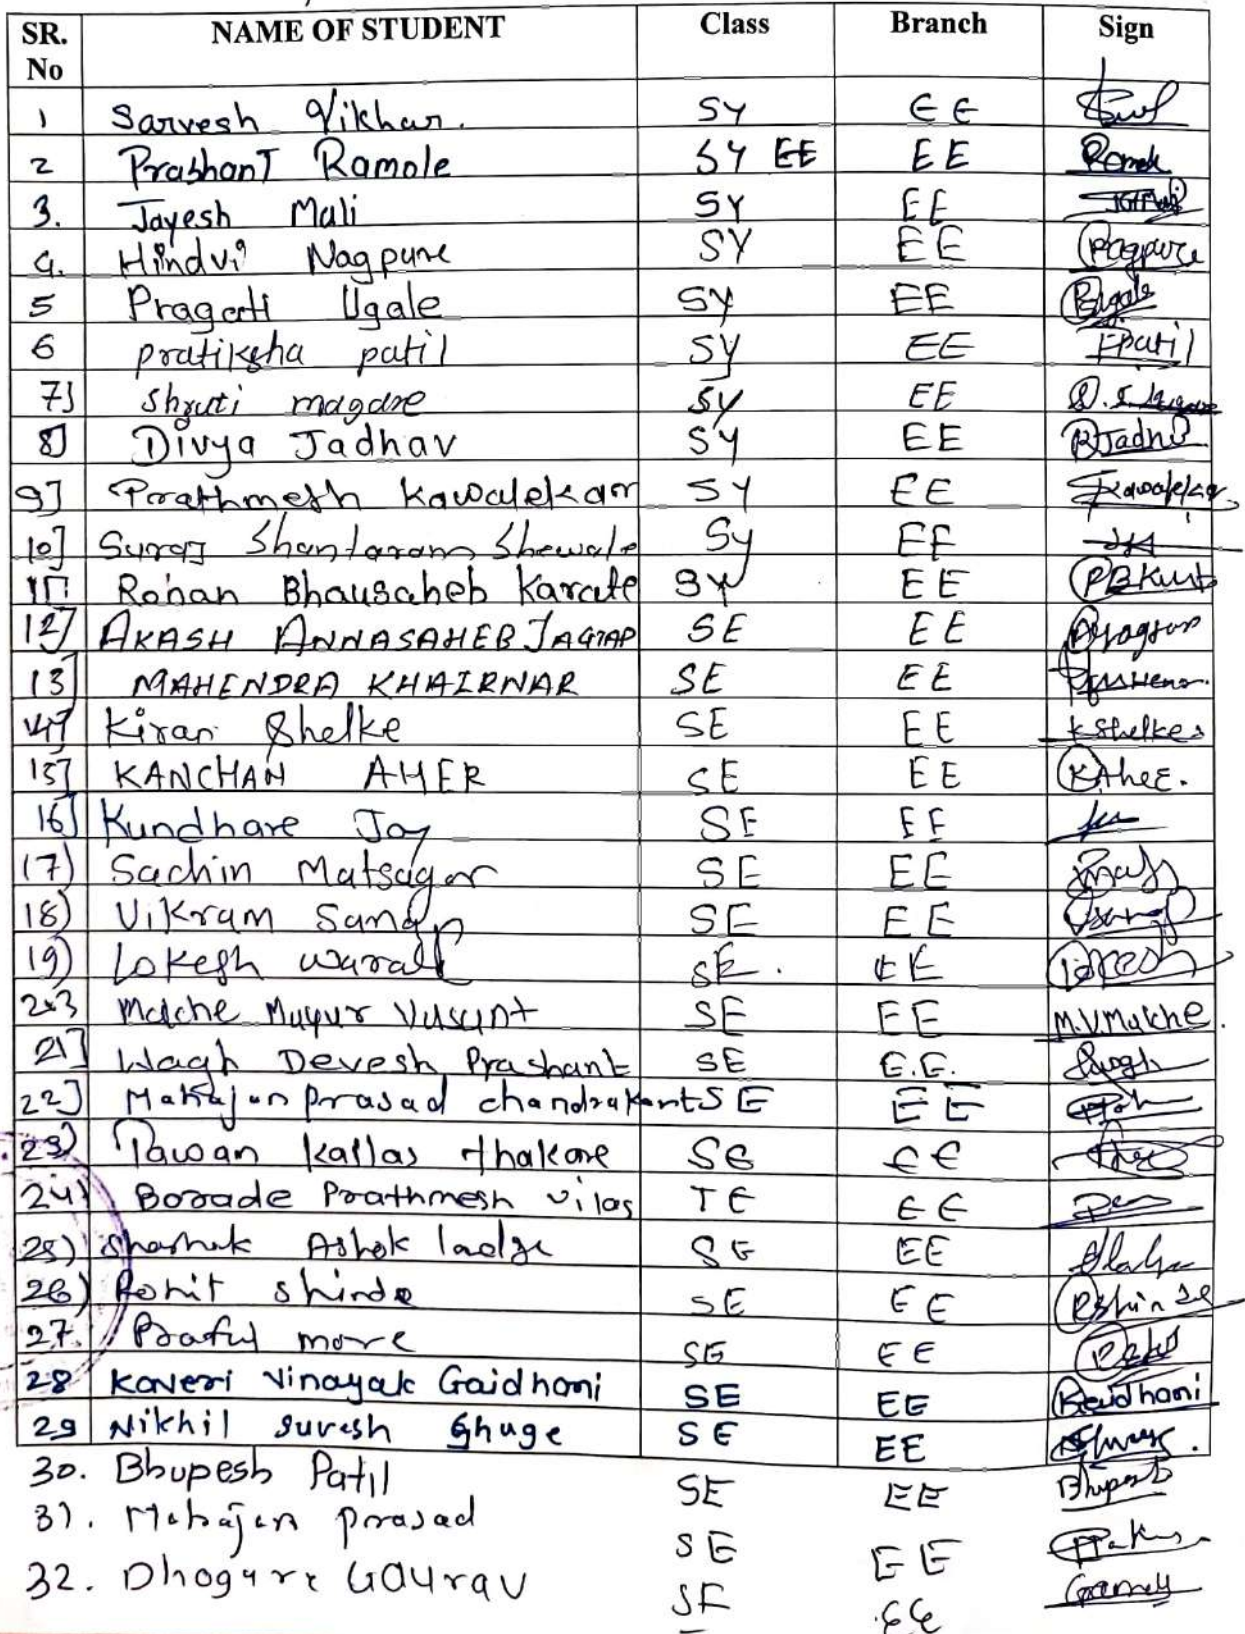 SR. No NAME OF STUDENT Class Branch Sign
1 Sarvesh Vikhar. SY EE
2 Prashant Ramole SY EE EE
3. Jayesh Mali SY EE
4. Hindvi Nagpure SY EE Nagpure
5 Pragati Ugale SY EE Ugale
6 pratiksha patil SY EE Ppatil
7] Shruti magare SY EE
8] Divya Jadhav SY EE DJadhav
9] Prathmesh Kawalekar SY EE Kawalekar
10] Suraj Shantaram Shewale Sy EE
11] Rohan Bhausaheb Karate SY EE
12] AKASH ANNASAHEB JAGTAP SE EE
13] MAHENDRA KHAIRNAR SE EE
14] Kiran Shelke SE EE KShelke
15] KANCHAN AHER SE EE KAher.
16] Kundhare Jay SE EE
17) Sachin Matsagar SE EE
18) Vikram Sanap SE EE
19) Lokesh SE. EE
Mayur Vasant SE EE M.V.Malche.
21] Wagh Devesh Prashant SE E.E. Wagh
22] Mahajan Prasad chandrakant SE EE
23) Pawan Kailas thakare SE EE
24) Borade Prathmesh vilas TE EE
25) Ashok SE EE
26) Rohit shinde SE EE RShinde
27. Praful more SE EE
28 Kaveri Vinayak Gaidhani SE EE Gaidhani
29 Nikhil suresh Ghuge SE EE
30. Bhupesh Patil SE EE Bhupesh
31. Mahajan prasad SE EE
32. Dhogare Gaurav SE EE